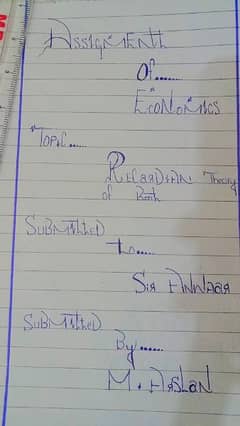 Assignment
Of......
Economics
Topic.....
Ricardian Theory
of Rent
Submitted
to.....
Sir Anwaar
Submitted
By......
M. Arslan